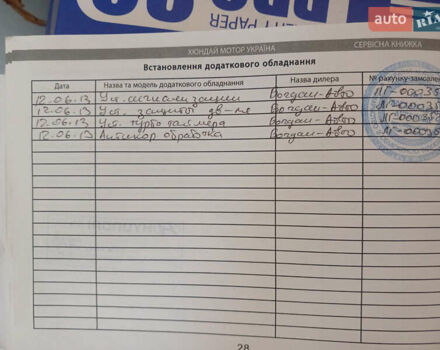 PAPER
auto RIA
ХЮНДАЙ МОТОР УКРАЇНА СЕРВІСНА КНИЖКА
Встановлення додаткового обладнання
Дата Назва та модель додаткового обладнання Назва дилера № рахунку-замовле
12.06.13 Уст. сигнализации Богдан-Авто ЛГ-000035
12.06.13 Уст. защиты дв-ля Богдан-Авто ЛГ-000035
12.06.13 Уст. турбо таймера Богдан-Авто ЛГ-000035
12.06.13 Антикор обработка Богдан-Авто ЛГ-00003
28